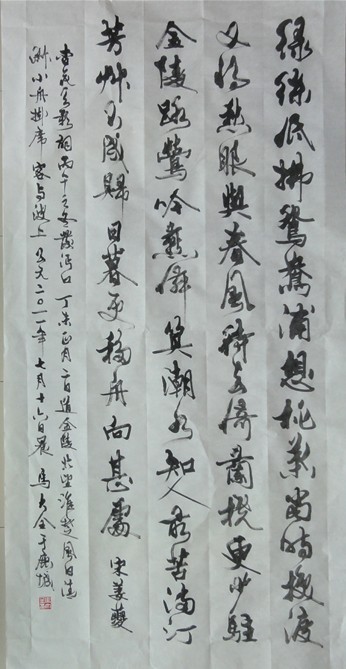 綠絲低拂鴛鴦浦想桃葉當時喚渡
又將愁眼與春風待去倚蘭橈更少駐
金陵路鶯吟燕儛算潮水知人最苦滿汀
芳艸不成歸日暮更移舟向甚處 宋姜夔
杏花天影詞 丙午之冬發沔口 丁未正月二日道金陵北望淮楚風日清
淑小舟掛席 容與波上 公元二〇一一年七月十六日晨 馬大全于鹿城